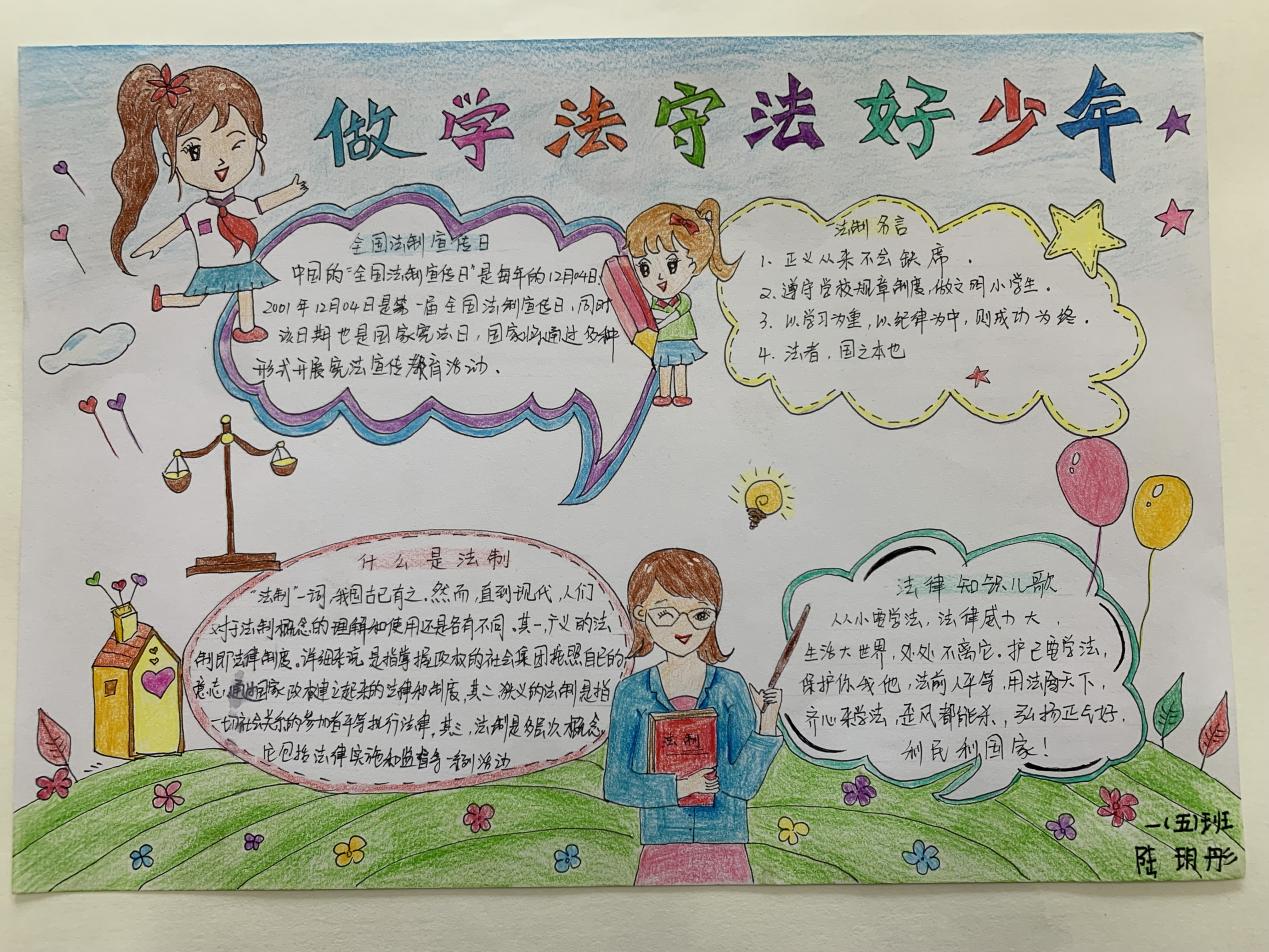 做学法守法好少年
全国法制宣传日
中国的“全国法制宣传日”是每年的12月04日,
2001年12月04日是第一届全国法制宣传日,同时
该日期也是国家宪法日,国家会通过各种
形式开展宪法宣传教育活动.
法制名言
1. 正义从来不会缺席.
2. 遵守学校规章制度,做文明小学生.
3. 以学习为重,以纪律为中,则成功为终.
4. 法者,国之本也
什么是法制
“法制”一词,我国古已有之.然而,直到现代,人们
对于法制概念的理解和使用还是各有不同.其一,广义的法
制即法律制度。详细来说,是指掌握政权的社会集团按照自己的
意志,通过国家政权建立起来的法律和制度,其二狭义的法制是指
一切社会关系的参加者平等执行法律,其三,法制是多层次概念,
它包括法律实施和监督等一系列活动
法律知识儿歌
从小要学法,法律威力大,
生活大世界,处处不离它.护己要学法,
保护你我他,法前人平等,用法闯天下,
齐心来学法,歪风都能杀,弘扬正气好,
利民利国家!
法制
一(五)班
陆玥彤